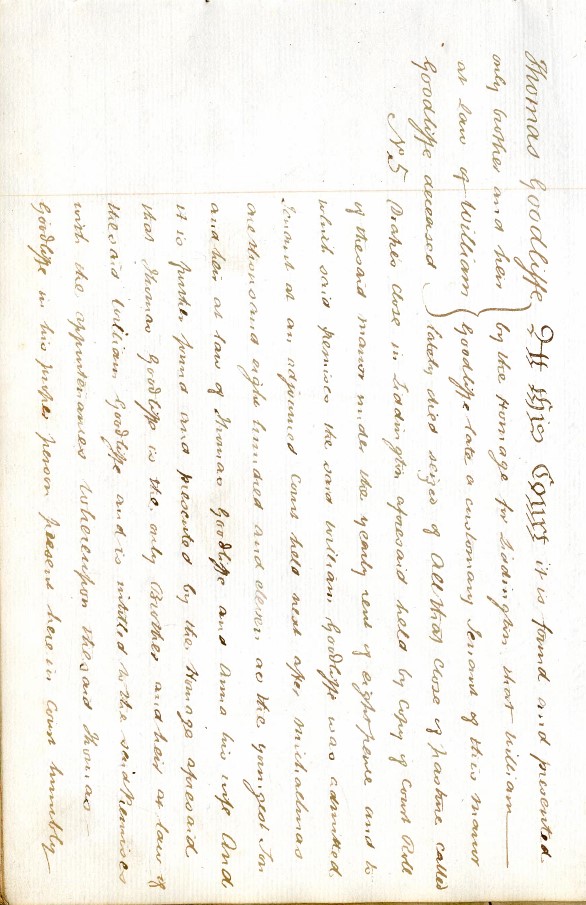 Thomas Goodliffe
only brother and heir
at Law of William
Goodliffe deceased
No. 5
At this Court it is found and presented
by the Homage for Liddington that William
Goodliffe late a customary Tenant of this Manor
lately died seized of All that Close of Pasture called
Brakes Close in Liddington aforesaid held by Copy of Court Roll
of the said Manor under the yearly rent of eight pence and to
which said premises the said William Goodliffe was admitted
Tenant at an adjourned Court held next after Michaelmas
one thousand eight hundred and eleven as the youngest Son
and heir at law of Thomas Goodliffe and Anna his wife And
it is further found and presented by the Homage aforesaid
that Thomas Goodliffe is the only Brother and heir at law of
the said William Goodliffe and is intitled to the said Premises
with the appurtenances Whereupon the said Thomas
Goodliffe in his proper person present here in Court humbly